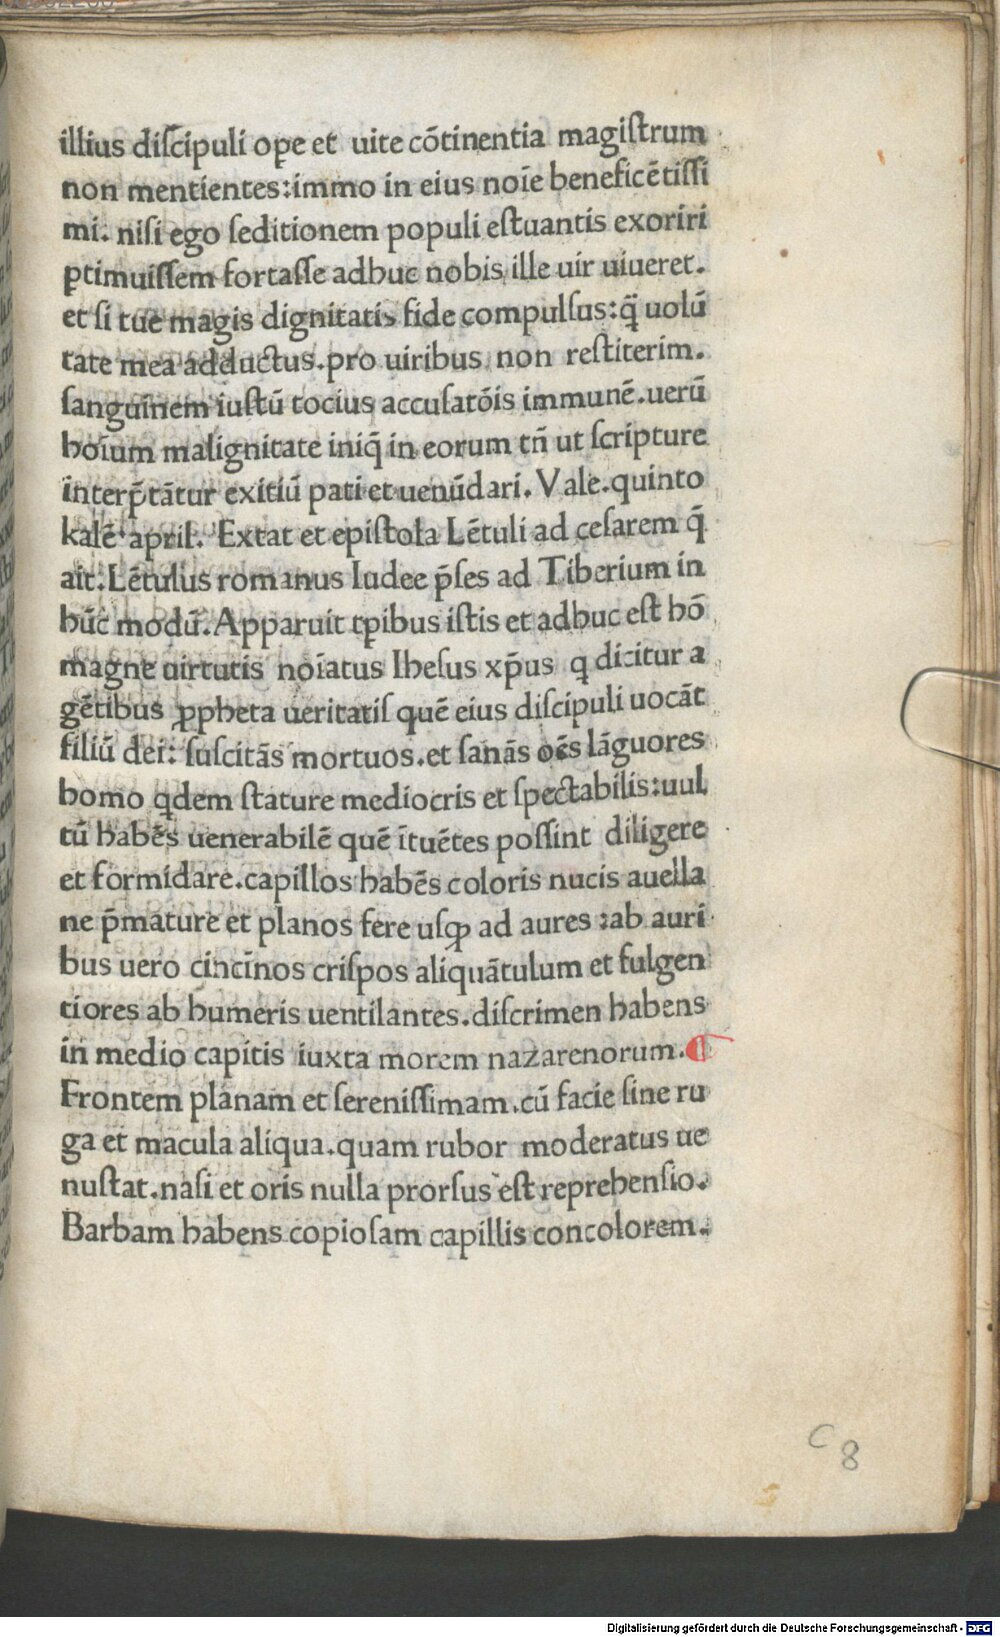 illius diſcipuli ope et uite cōtinentia magiſtrum
non mentientes:immo in eius noīe beneficētiſſi
mi. niſi ego ſeditionem populi eſtuantis exoriri
ꝑtimuiſſem fortaſſe adhuc nobis ille uir uiueret.
et ſi tue magis dignitatis fide compulſus:q̄ uolū
tate mea adductus.pro uiribus non reſtiterim.
ſanguinem iuſtū tocius accuſatōis immunē.uerū
hoīum malignitate iniq̄ in eorum tn̄ ut ſcripture
interp̄tātur exitiū pati et uenūdari. Vale.quinto
kalē april. Extat et epiſtola Lētuli ad ceſarem q̄
ait.Lētulus romanus Iudee p̄ſes ad Tiberium in
hūc modū.Apparuit tꝑibus iſtis et adhuc eſt hō
magne uirtutis noīatus Iheſus xp̄us q dicitur a
gētibus ꝓpheta ueritatiſ quē eius diſcipuli uocāt
filiū dei: ſuſcitās mortuos.et ſanās oēs lāguores
homo qdem ſtature mediocris et ſpectabilis:uul
tū habēs uenerabilē quē ītuētes poſſint diligere
et formidare.capillos habēs coloris nucis auella
ne p̄mature et planos fere uſqꝫ ad aures :ab auri
bus uero cincīnos criſpos aliquātulum et fulgen
tiores ab humeris uentilantes.diſcrimen habens
in medio capitis iuxta morem nazarenorum.¶
Frontem planam et ſereniſſimam.cū facie ſine ru
ga et macula aliqua.quam rubor moderatus ue
nuſtat.naſi et oris nulla prorſus eſt reprehenſio.
Barbam habens copioſam capillis concolorem.
c8
Digitalisierung gefördert durch die Deutsche Forschungsgemeinschaft - DFG